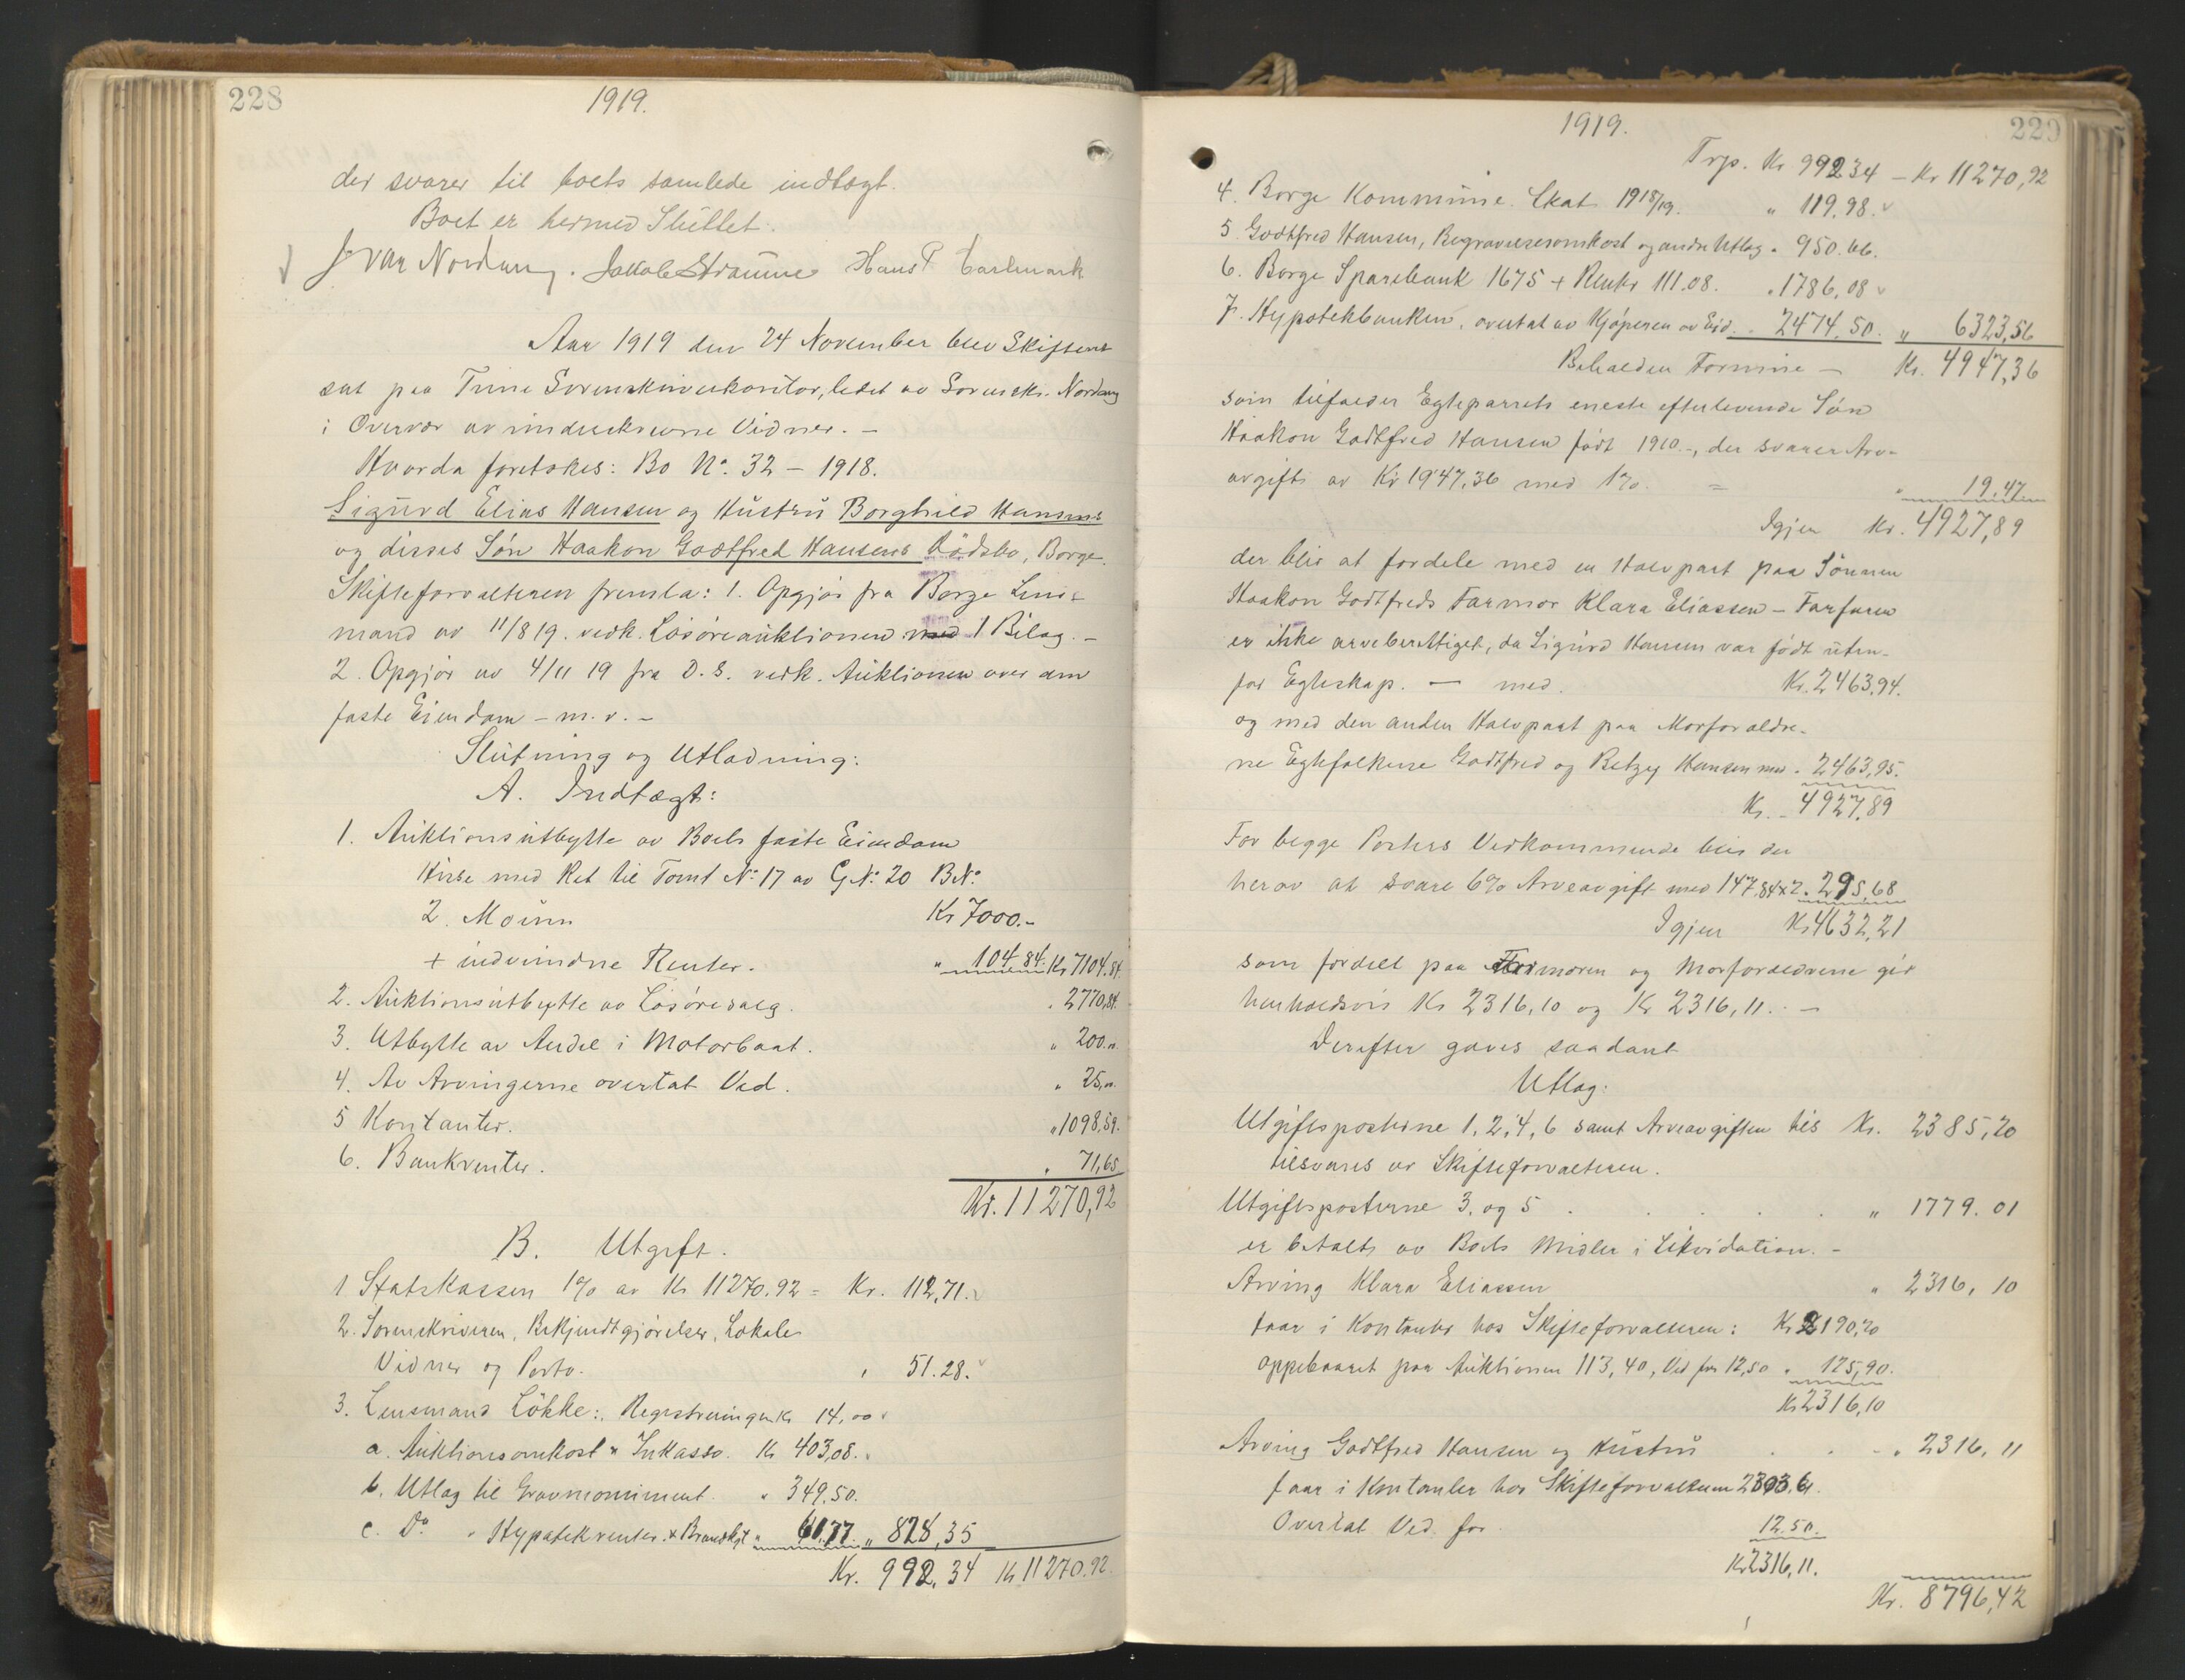 228
1919.
der svarer til boets samlede indtægt.
Boet er hermed Sluttet.
Ivar Nordang. Jakob Straume Hans P
Aar 1919 den 24 November blev Skifteret
sat paa Tune Sorenskriverkontor, ledet av Sorenskr. Nordang
i Overvær av underskrevne Vidner. –
Hvorda foretokes: Bo No. 32 – 1918.
Sigurd Elias Hansen og Hustru Borghild Hansens
og disses Søn Haakon Godtfred Hansens Rödsbo, Borge.
Skifteforvalteren fremla: 1. Opgjör fra Borge Lens-
mand av 11/8 19. vedk. Lösöreauktionen med 1 Bilag. –
2. Opgjör av 4/11 19 fra D. S. vedk. Auktionen over den
faste Eiendom – m. v. –
Slutning og Utlodning:
A. Indtægt:
1. Auktionsutbytte av Boets faste Eiendom
Huse med Ret til Tomt No. 17 av G.No. 20 B.No.
2. Moum Kr 7000.–
+ indvundne Renter. " 104.84. Kr 7104.84
2. Auktionsutbytte av Lösöresalg. " 2770,84.
3. Utbytte av Andel i Motorbaat. " 200.00.
4. Av Arvingerne overtat Ved. " 25,00.
5 Kontanter. " 1098,59.
6. Bankrenter. " 71,65
Kr. 11270,92
B. Utgift.
1 Statskassen 1% av Kr 11270.92 = Kr. 112,71.
2. Sorenskriveren, Bekjendtgjörelser, Lokale
Vidner og Porto. " 51.28.
3. Lensmand Lökke:, Registreringen Kr 14,00
a. Auktionsomkost " Inkasso. Kr 403,08.
b. Utlæg til Gravmonument. " 349.50.
c. Do. " Hypotekrenter. & Brandkgt " 61.77. " 828,35
Kr. 992,34 Kr 11270.92.
1919.
229
Trp. Kr 992.34 – Kr 11270,92
4. Borge Kommune. Skat 1918/19. " 119.98.
5. Godtfred Hansen, Begravelsesomkost og andre Utlæg " 950.66.
6. Borge Sparebank 1675 + Renter 111.08. " 1786,08
7. Hypotekbanken, overtat av Kjöperen av Eid. " 2474.50. " 6323,56
Beholden Formue – Kr. 4947,36
som tilfalder Egteparrets eneste efterlevende Søn
Haakon Godtfred Hansen født 1910.–, der svarer Arv-
avgift av Kr 1947.36 med 1% = " 19.47
Igjen Kr. 4927,89
der blir at fordele med en Halvpart paa Sønnen
Haakon Godtfreds Farmor Klara Eliassen – Farfaren
er ikke arveberettiget, da Sigurd Hansen var født uten-
for Egteskap. – med. Kr. 2463,94.
og med den anden Halvpart paa Morforældre-
ne Egtefolkene Godtfred og Betzy Hansen med " 2463,95.
Kr. – 4927,89
For begge Parters Vedkommende blir der
herav at svare 6% Arveavgift med 147,84 x 2. 295,68
Igjen Kr 4632,21
som fordelt paa Farmoren og Morforældrene gir
henholdsvis Kr 2316,10 og Kr 2316,11. –
Derefter gaves saadant
Utlæg:
Utgiftsposterne 1, 2, 4, 6 samt Arveavgiften tils Kr. 2385,20
tilsvares av Skifteforvalteren.
Utgiftsposterne 3. og 5 . . . . . " 1779.01
er betalt av Boets Midler i Likvidation. –
Arving Klara Eliassen " 2316,10
faar i Kontanter hos Skifteforvalteren: Kr 2190,20
oppebaaret paa Auktionen 113,40, Ved for 12,50 " 125,90.
Kr 2316,10
Arving Godtfred Hansen og Hustru . . – " 2316,11
faar i Kontanter hos Skifteforvalteren 2303.61.
Overtat Ved for 12.50.
Kr 2316,11.
Kr. 8796,42